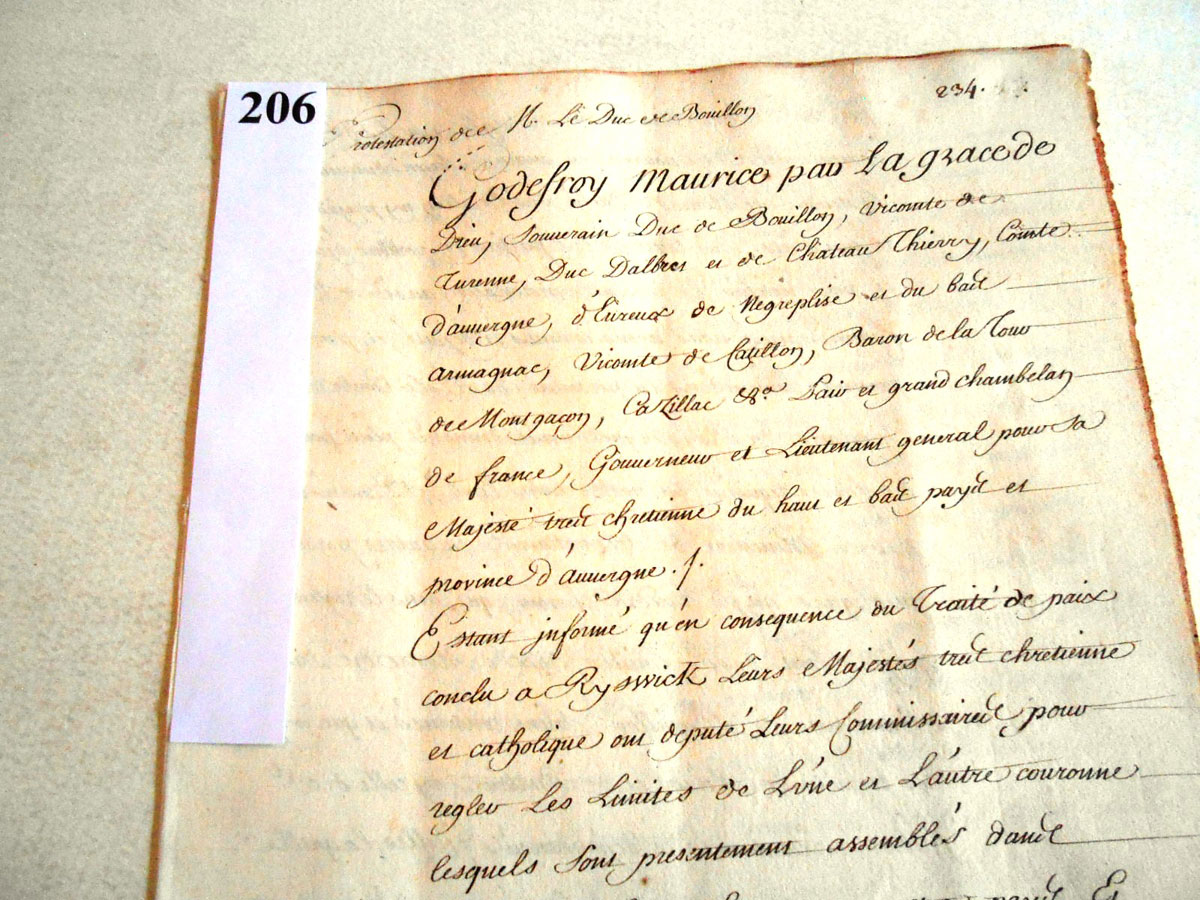 206
234.
Protestation de M. Le Duc de Bouillon
Godefroy Maurice par La grace de
Dieu, Souverain Duc de Bouillon, Vicomte de
Turenne, Duc Dalbret et de Chateau Thierry, Comte
d'auvergne, d'Evreux de Negreplise et du bas
armagnac, Vicomte de Catillon, Baron de la Tour
de Montgacon, Cazillac &ca. Pair et grand chambelan
de france, Gouverneur et Lieutenant general pour sa
Majesté tres chretienne du haut et bas pays et
province d'auvergne./.
Estant informé qu'en consequence du Traité de paix
conclu a Ryswick Leurs Majestés tres chretienne
et catholique ont deputé Leurs Commissaires pour
regler Les Limites de L'vne et L'autre couronne
lesquels sont presentement assemblés dans
pays Et